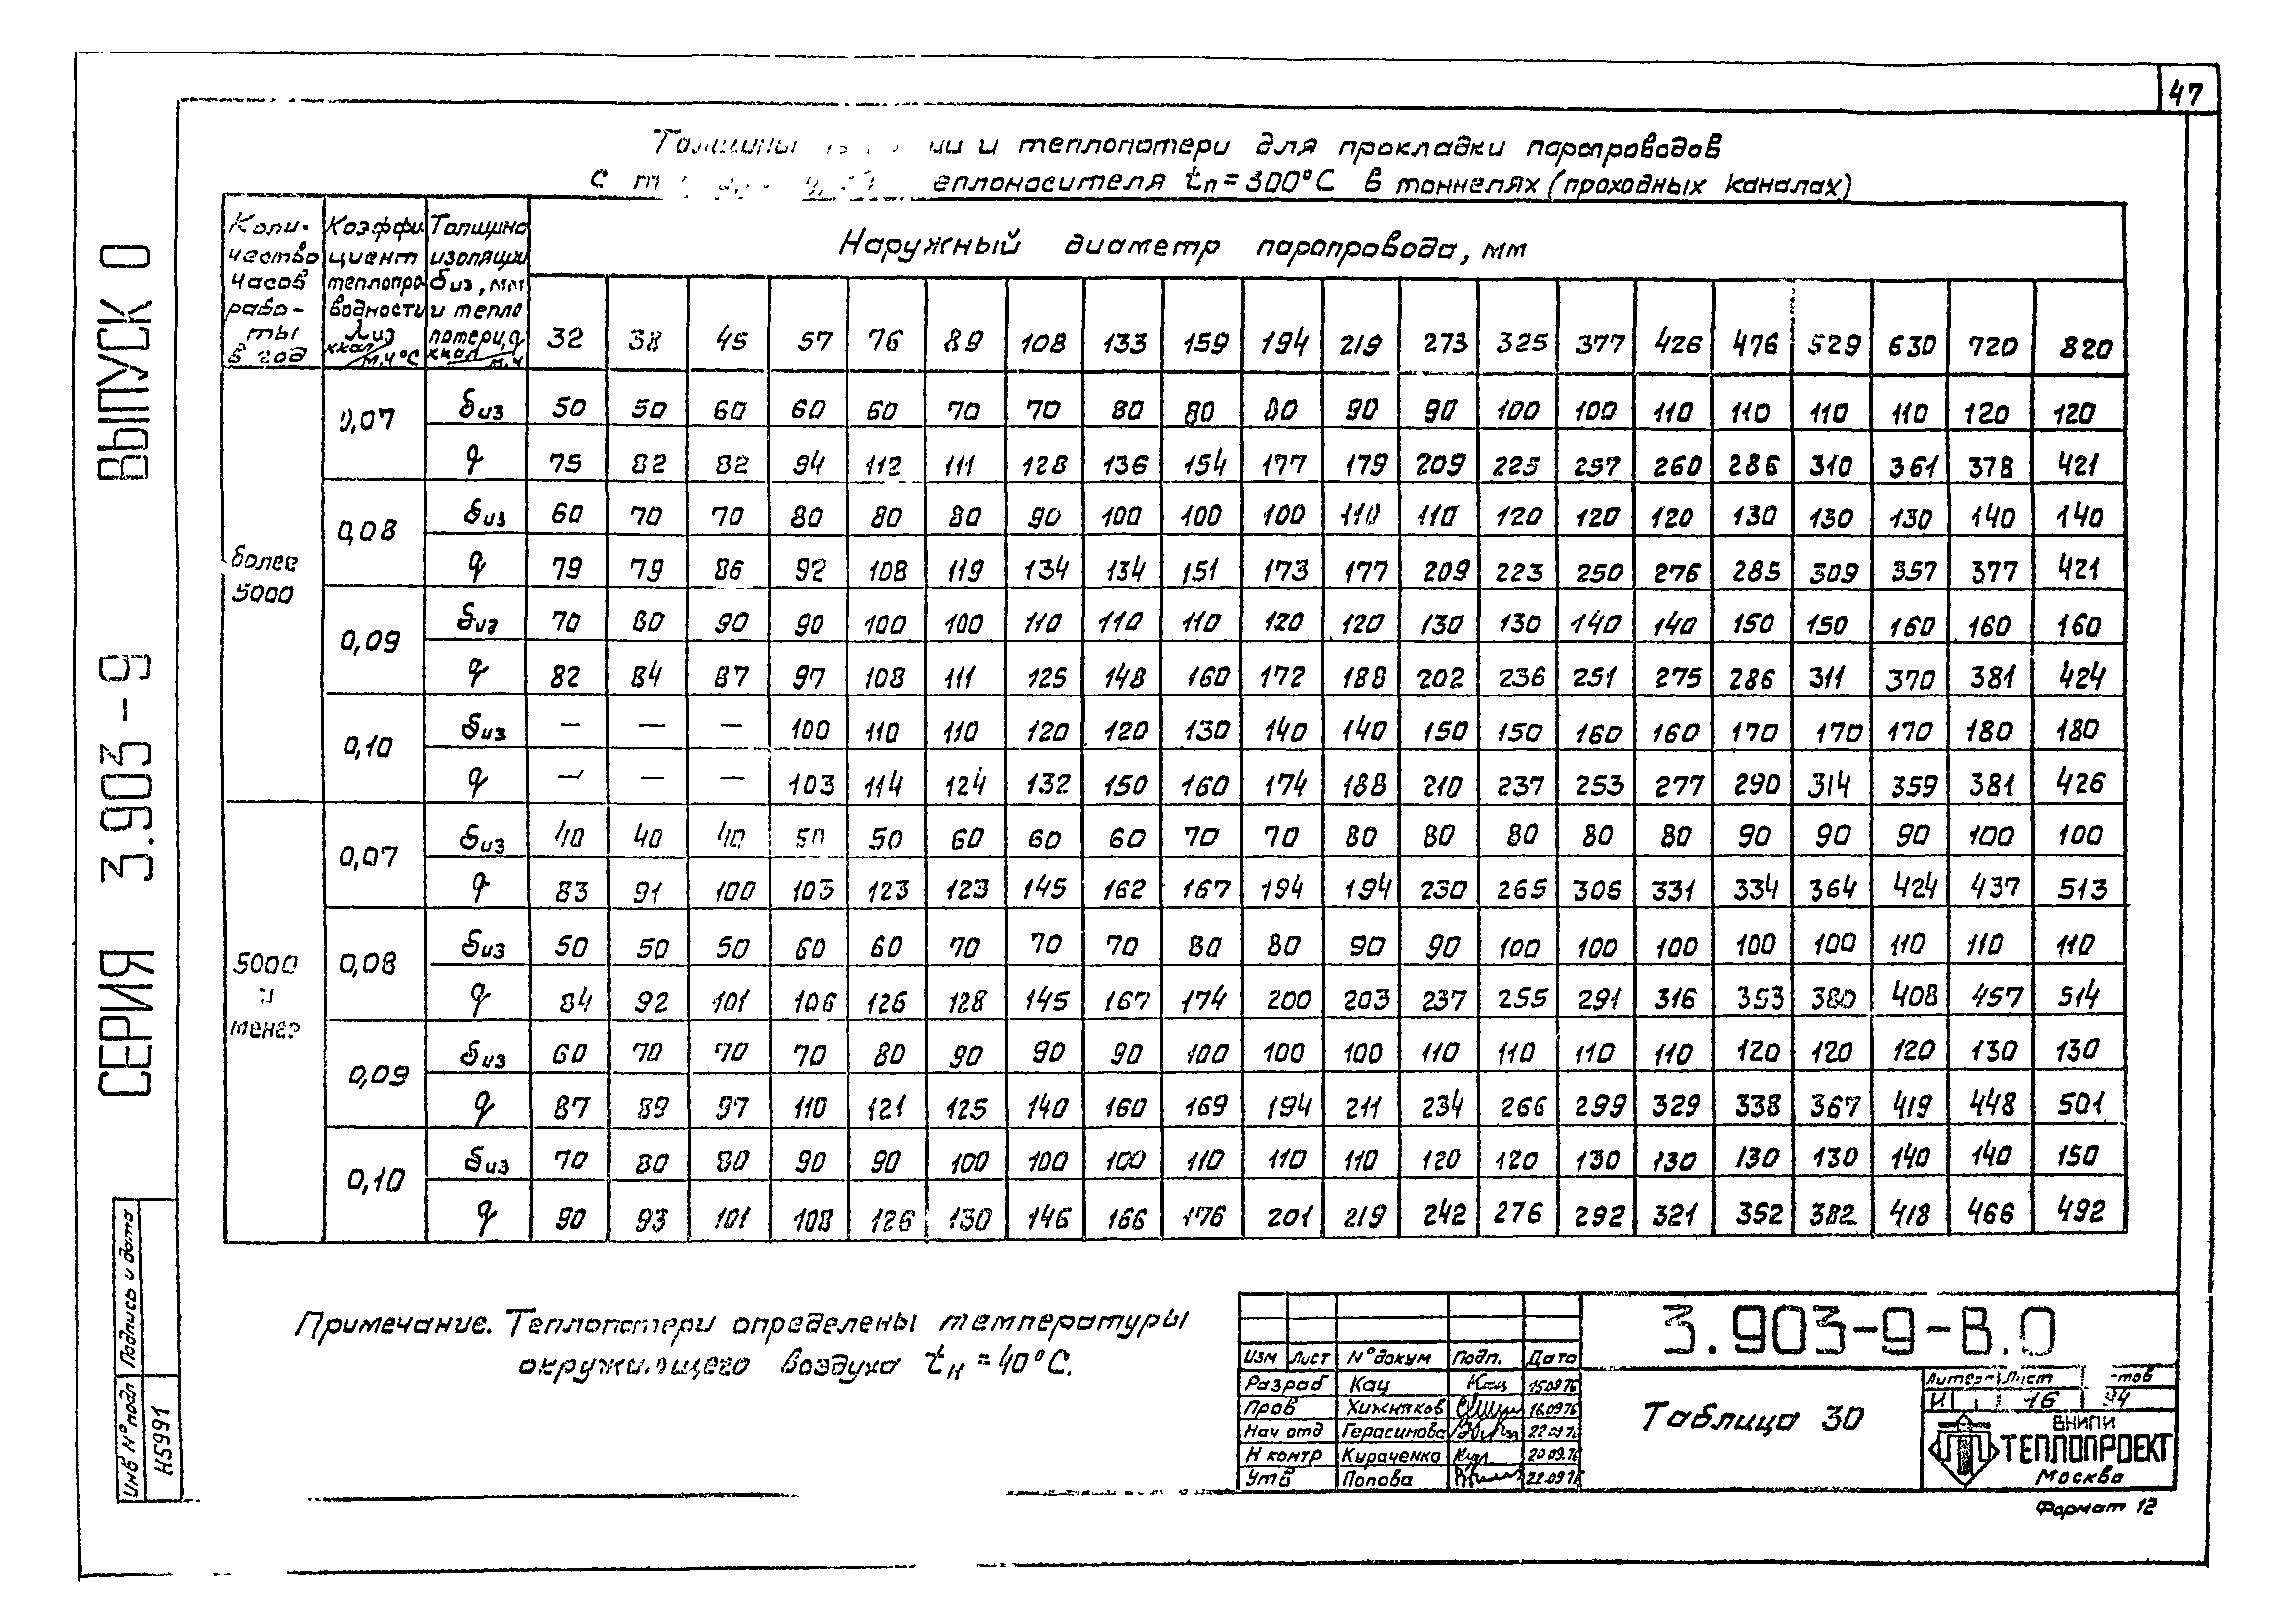 47
ии и теплопотери для прокладки паропроводов
с теплоносителя tп=300°С в тоннелях (проходных каналах)
Коли- Коэффи Толщина
чество циент изоляции
часов теплопро δиз, мм
рабо- водности и тепло
ты λиз потери, q
в год ккал/м.ч°С ккал/м.ч
Наружный диаметр паропровода, мм
32 38 45 57 76 89 108 133 159 194 219 273 325 377 426 476 529 630 720 820
более 5000
0,07 δиз 50 50 60 60 60 70 70 80 80 80 90 90 100 100 110 110 110 110 120 120
q 75 82 82 94 112 111 128 136 154 177 179 209 225 257 260 286 310 361 378 421
0,08 δиз 60 70 70 80 80 80 90 100 100 100 110 110 120 120 120 130 130 130 140 140
q 79 79 86 92 108 119 134 134 151 173 177 209 223 250 276 285 309 357 377 421
0,09 δиз 70 80 90 90 100 100 110 110 110 120 120 130 130 140 140 150 150 160 160 160
q 82 84 87 97 108 111 125 148 160 172 188 202 236 251 275 286 311 370 381 424
0,10 δиз — — — 100 110 110 120 120 130 140 140 150 150 160 160 170 170 170 180 180
q — — — 103 114 124 132 150 160 174 188 210 237 253 277 290 314 359 381 426
5000 и менее
0,07 δиз 40 40 40 50 50 60 60 60 70 70 80 80 80 80 80 90 90 90 100 100
q 83 91 100 103 123 123 145 162 167 194 194 230 265 306 331 334 364 424 437 513
0,08 δиз 50 50 50 60 60 70 70 70 80 80 90 90 100 100 100 100 100 110 110 110
q 84 92 101 106 126 128 145 167 174 200 203 237 255 291 316 353 380 408 457 514
0,09 δиз 60 70 70 70 80 90 90 90 100 100 100 110 110 110 110 120 120 120 130 130
q 87 89 97 110 121 125 140 160 169 194 211 234 266 299 329 338 367 419 448 501
0,10 δиз 70 80 80 90 90 100 100 100 110 110 110 120 120 130 130 130 130 140 140 150
q 90 93 101 108 126 130 146 166 176 201 219 242 276 292 321 352 382 418 466 492
Примечание. Теплопотери определены температуры
окружающего воздуха tн = 40°С.
СЕРИЯ 3.903-9 ВЫПУСК 0
Инв N°подл Подпись и дата
Н5991
3.903-9-В.0
Изм Лист N°докум Подп. Дата
Разраб Кац 15.09.76
Пров Хижняков 16.09.76
Нач отд Герасимова
Н контр Кураченко 20.09.76
Утв Попова
Таблица 30
Литера Лист
И 16 94
ВНИПИ
ТЕПЛОПРОЕКТ
Москва
Формат 12